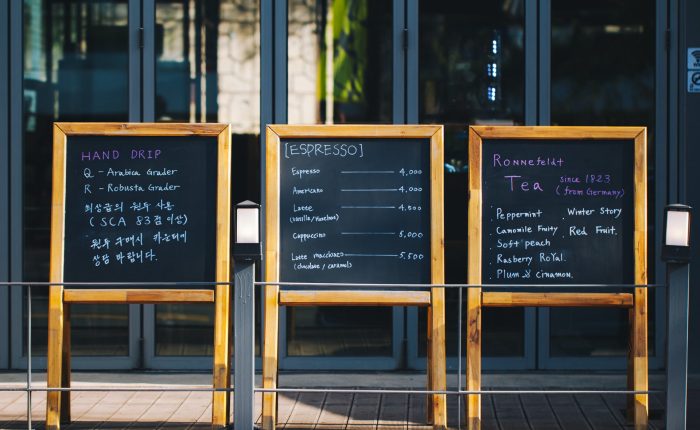 HAND DRIP
Q - Arabica Grader
R - Robusta Grader
최상급의 원두 사용
( SCA 83점 이상)
원두 구매시 카운터에
상담 바랍니다.
[ESPRESSO]
Espresso 4,000
Americano 4,000
Latte 4,500
(vanilla/Hazelnut)
Cappuccino 5,000
Latte macchiato 5,500
(chocolate / caramel)
Ronnefeldt
Tea since 1823
(from Germany)
Peppermint
Camomile Fruity
Soft peach
Rasberry RoYal.
Plum & cinnamon.
Winter Story
Red Fruit.